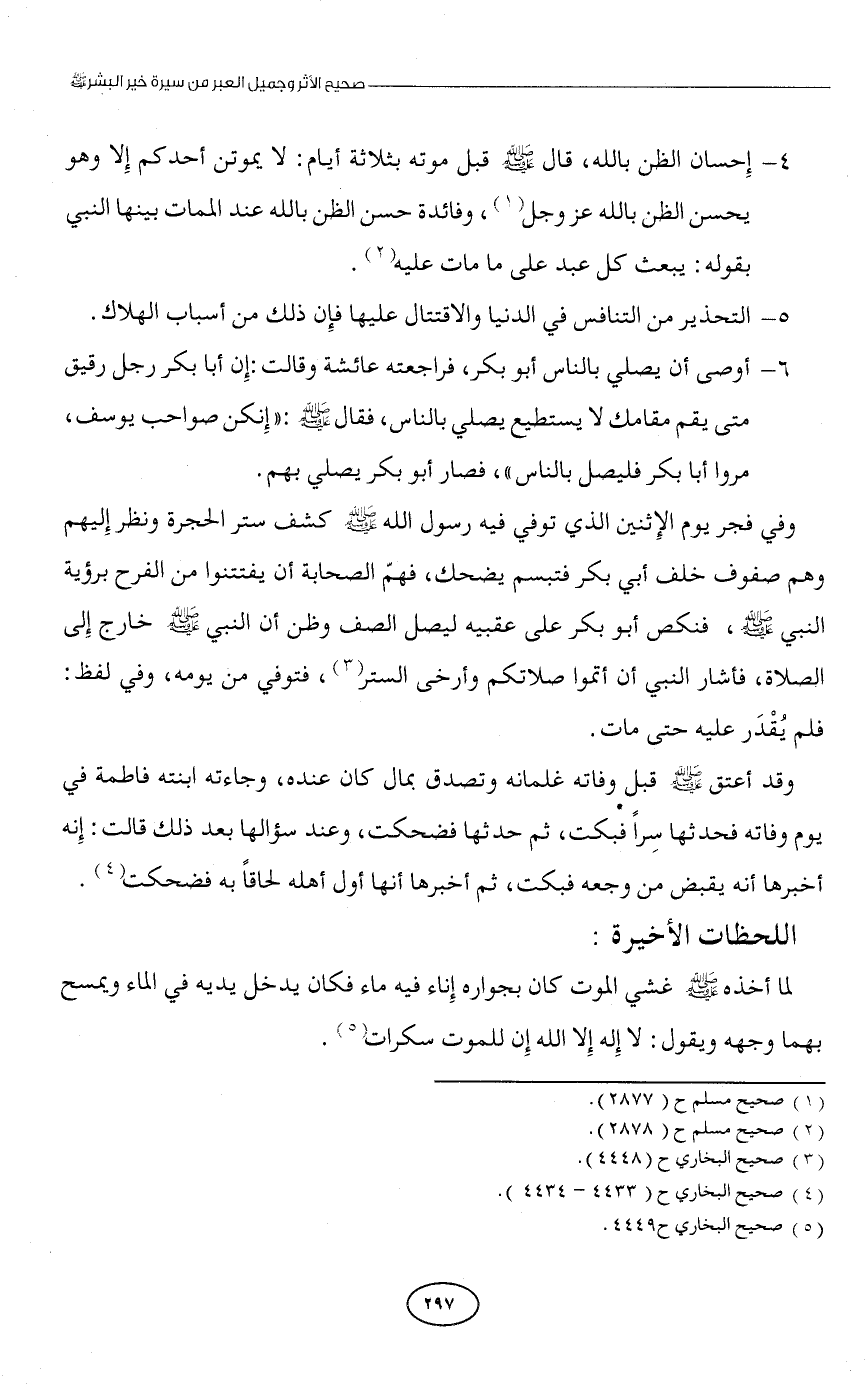 صحيح الأثر وجميل العبر من سيرة خير البشر ﷺ
٤- إحسان الظن بالله، قال ﷺ قبل موته بثلاثة أيام: لا يموتن أحدكم إلا وهو
يحسن الظن بالله عز وجل(١)، وفائدة حسن الظن بالله عند الممات بينها النبي
بقوله: يبعث كل عبد على ما مات عليه(٢).
٥- التحذير من التنافس في الدنيا والاقتتال عليها فإن ذلك من أسباب الهلاك.
٦- أوصى أن يصلي بالناس أبو بكر، فراجعته عائشة وقالت: إن أبا بكر رجل رقيق
متى يقم مقامك لا يستطيع يصلي بالناس، فقال ﷺ: «إنكن صواحب يوسف،
مروا أبا بكر فليصل بالناس»، فصار أبو بكر يصلي بهم.
وفي فجر يوم الإثنين الذي توفي فيه رسول الله ﷺ كشف ستر الحجرة ونظر إليهم
وهم صفوف خلف أبي بكر فتبسم يضحك، فهمّ الصحابة أن يفتتنوا من الفرح برؤية
النبي ﷺ، فنكص أبو بكر على عقبيه ليصل الصف وظن أن النبي ﷺ خارج إلى
الصلاة، فأشار النبي أن أتموا صلاتكم وأرخى الستر(٣)، فتوفي من يومه، وفي لفظ:
فلم يُقْدَر عليه حتى مات.
وقد أعتق ﷺ قبل وفاته غلمانه وتصدق بمال كان عنده، وجاءته ابنته فاطمة في
يوم وفاته فحدثها سِراً فبكت، ثم حدثها فضحكت، وعند سؤالها بعد ذلك قالت: إنه
أخبرها أنه يقبض من وجعه فبكت، ثم أخبرها أنها أول أهله لحاقاً به فضحكت(٤).
اللحظات الأخيرة :
لما أخذه ﷺ غشي الموت كان بجواره إناء فيه ماء فكان يدخل يديه في الماء ويمسح
بهما وجهه ويقول: لا إله إلا الله إن للموت سكرات(٥).
(١) صحيح مسلم ح ( ٢٨٧٧).
(٢) صحيح مسلم ح ( ٢٨٧٨).
(٣) صحيح البخاري ح (٤٤٤٨).
(٤) صحيح البخاري ح ( ٤٤٣٣ - ٤٤٣٤ ).
(٥) صحيح البخاري ح٤٤٤٩.
٢٩٧